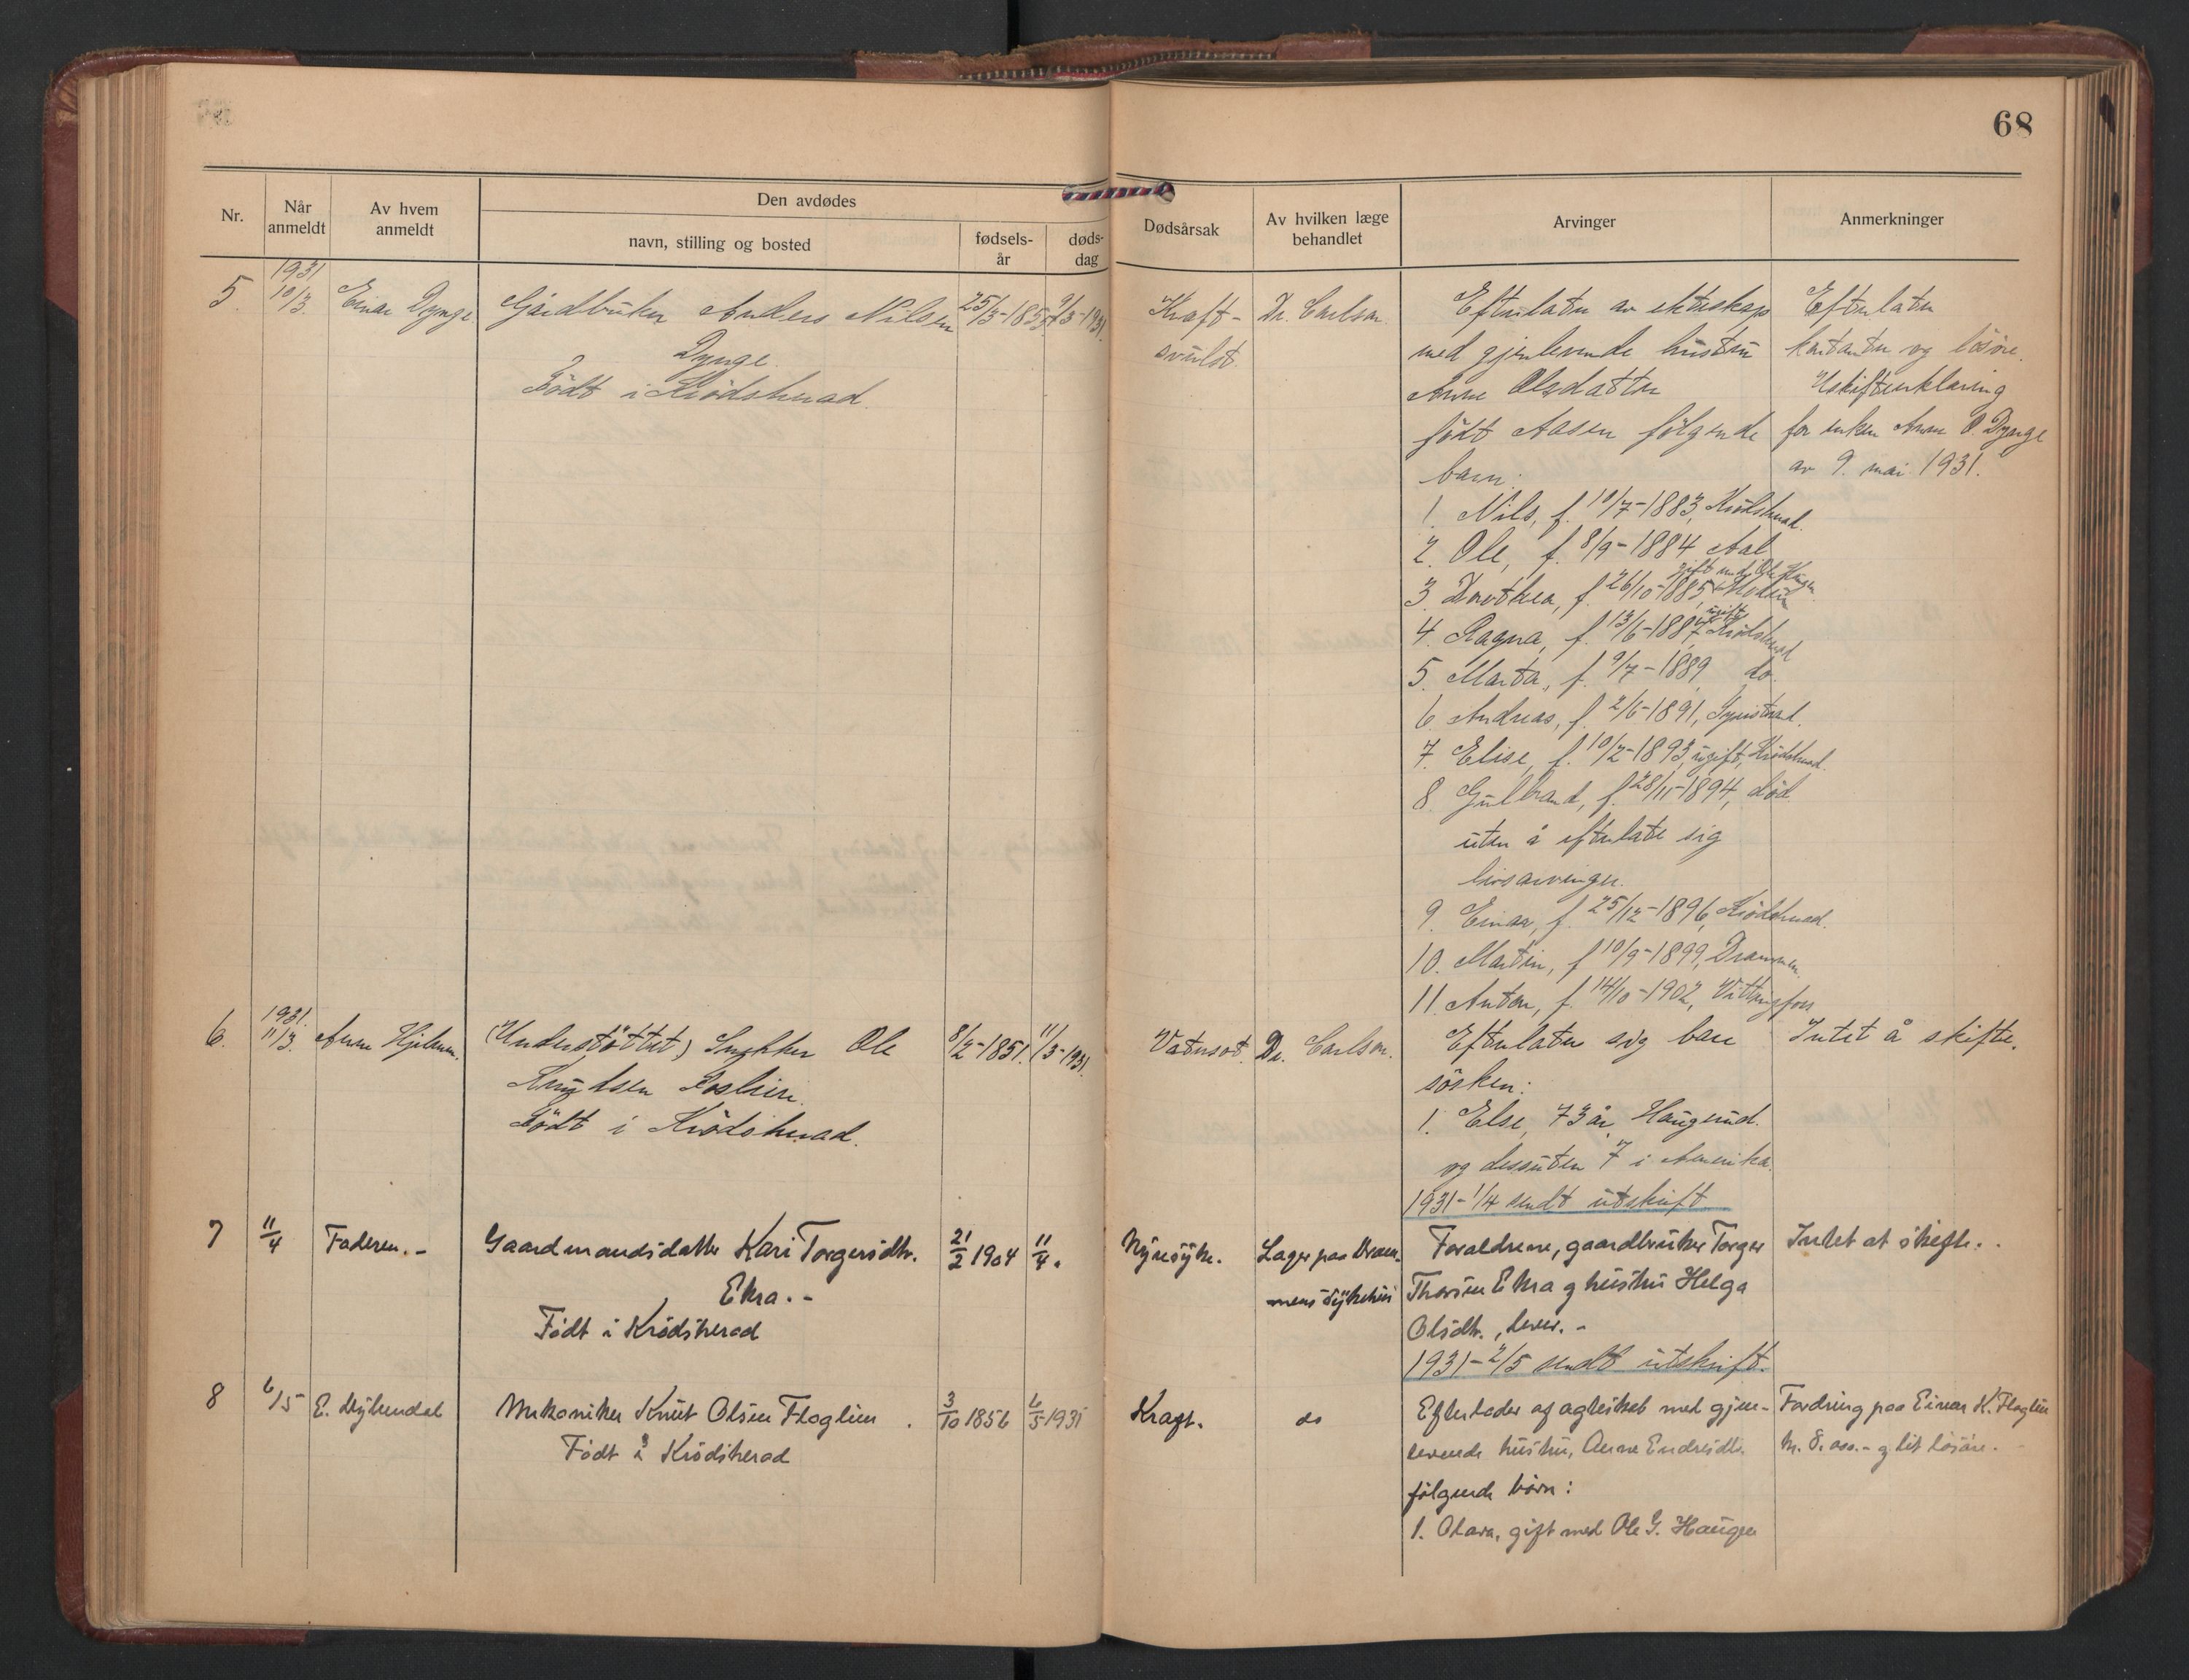 68
Nr.
Når anmeldt
Av hvem anmeldt
Den avdødes
navn, stilling og bosted
fødsels-år
døds-dag
Dødsårsak
Av hvilken læge behandlet
Arvinger
Anmerkninger
5.
1931
10/3.
Einar Dynge
Gårdbruker Anders Nilsen
Dynge.
Født i Krødsherad.
25/3-185
9/3-1931.
Kræft-
svulst.
Dr. Carlson.
Efterlater av ekteskap
med gjenlevende hustru
Anne Olsdatter
født Aasen følgende
barn:
1. Nils, f. 10/7-1883, Krødsherad.
2. Ole, f. 8/9-1884 Aal
gift med Ole
3. Dorothea, f. 26/10-1885 Modum
ugift
4. Ragna, f. 13/6-1887, Krødsherad
5. Marta, f. 9/7-1889 do.
6. Andreas, f. 2/6-1891,
7. Elise, f. 10/2-1893, ugift, Krødsherad.
8. Gulbrand, f. 28/11-1894, død
uten å efterlate sig
livsarvinger.
9. Einar, f. 25/12-1896, Krødsherad.
10. Martin, f. 10/9-1899, Drammen.
11. Anton, f. 14/10-1902, Vittingfoss
Efterlater
kontanter og løsøre.
Uskifteerklæring
for enken Anne O. Dynge
av 9. mai 1931.
6.
1931.
11/3.
Anne
(Understøttet) Snekker Ole
Knudsen
Født i Krødsherad.
8/2-1851.
11/3-1931.
Vatersot.
Dr. Carlson.
Efterlater sig bare
søsken:
1. Else, 73 år, Haugerud.
og dessuten 7 i Amerika.
1931-1/4 sendt utskrift
Intet å skifte.
7
11/4
Faderen.-
Gaardmandsdatter Kari Torgersdtr.
Ekra.-
Født i Krødsherad
21/2 1904
11/4.
Nyresyke.
Læger paa Dram-
mens Sykehus
Foraldrene, gaardbruker Torger
Thorsen Ekra og hustru Helga
Olsdtr., lever.-
1931-2/5 sendt utskrift.
Intet at skifte.
8
6/5
E.
Knut Olsen Floglien.
Født i Krødsherad
3/10 1856
6/5 1931
Kræft.
do
Efterlader af ægteskab med gjen-
levende hustru, Anne Endresdtr.
følgende børn:
1. Olava, gift med Ole G. Haugen
Fordring paa Einar K. Floglien
og lit løsøre.